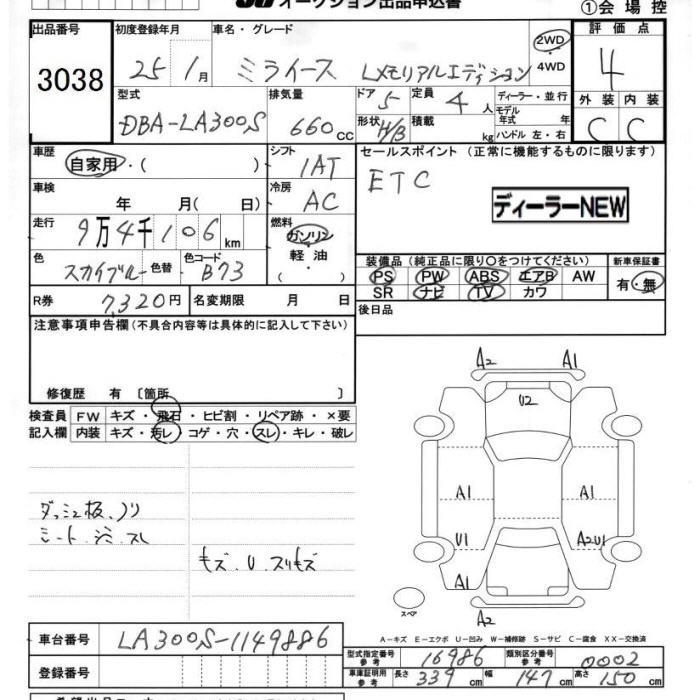 オークション出品申込書
①会場控
出品番号
3038
初度登録年月
25 1月
車名・グレード
ミライース Lメモリアルエディション
2WD
・
4WD
評価点
4
外装 内装
C C
型式
DBA-LA300S
排気量
660 CC
ドア 5
形状 H/B
定員 4 人
積載 kg
ディーラー・並行
モデル年式 年
ハンドル 左・右
車歴
自家用・( )
シフト
1AT
車検
年 月( 日)
冷房
AC
走行
9万4千106km
燃料
ガソリン
・
軽油
・
( )
色
スカイブルー
色替
色コード
B73
R券
7,320円
名変期限 月 日
セールスポイント (正常に機能するものに限ります)
ETC
ディーラーNEW
装備品 (純正品に限り○をつけてください)
PS PW ABS エアB AW
SR ナビ TV カワ
新車保証書
有・無
後日品
注意事項申告欄(不具合内容等は具体的に記入して下さい)
修復歴 有 〔箇所 〕
検査員記入欄
FW キズ・飛石・ヒビ割・リペア跡・×要
内装 キズ・汚レ・コゲ・穴・スレ・キレ・破レ
ダッシュ板、ノリ
シート・シミ・スレ
キズ・U・スリキズ
A2 A1
U2
A1 A1
U1 A2U1
A1
A2
スペア
A-キズ E-エクボ U-凹み W-補修跡 S-サビ C-腐食 XX-交換済
車台番号
LA300S-1149886
登録番号
型式指定番号 参考
16986
類別区分番号 参考
0002
車庫証明用 参考
長さ 339 cm
幅 147 cm
高さ 150 cm